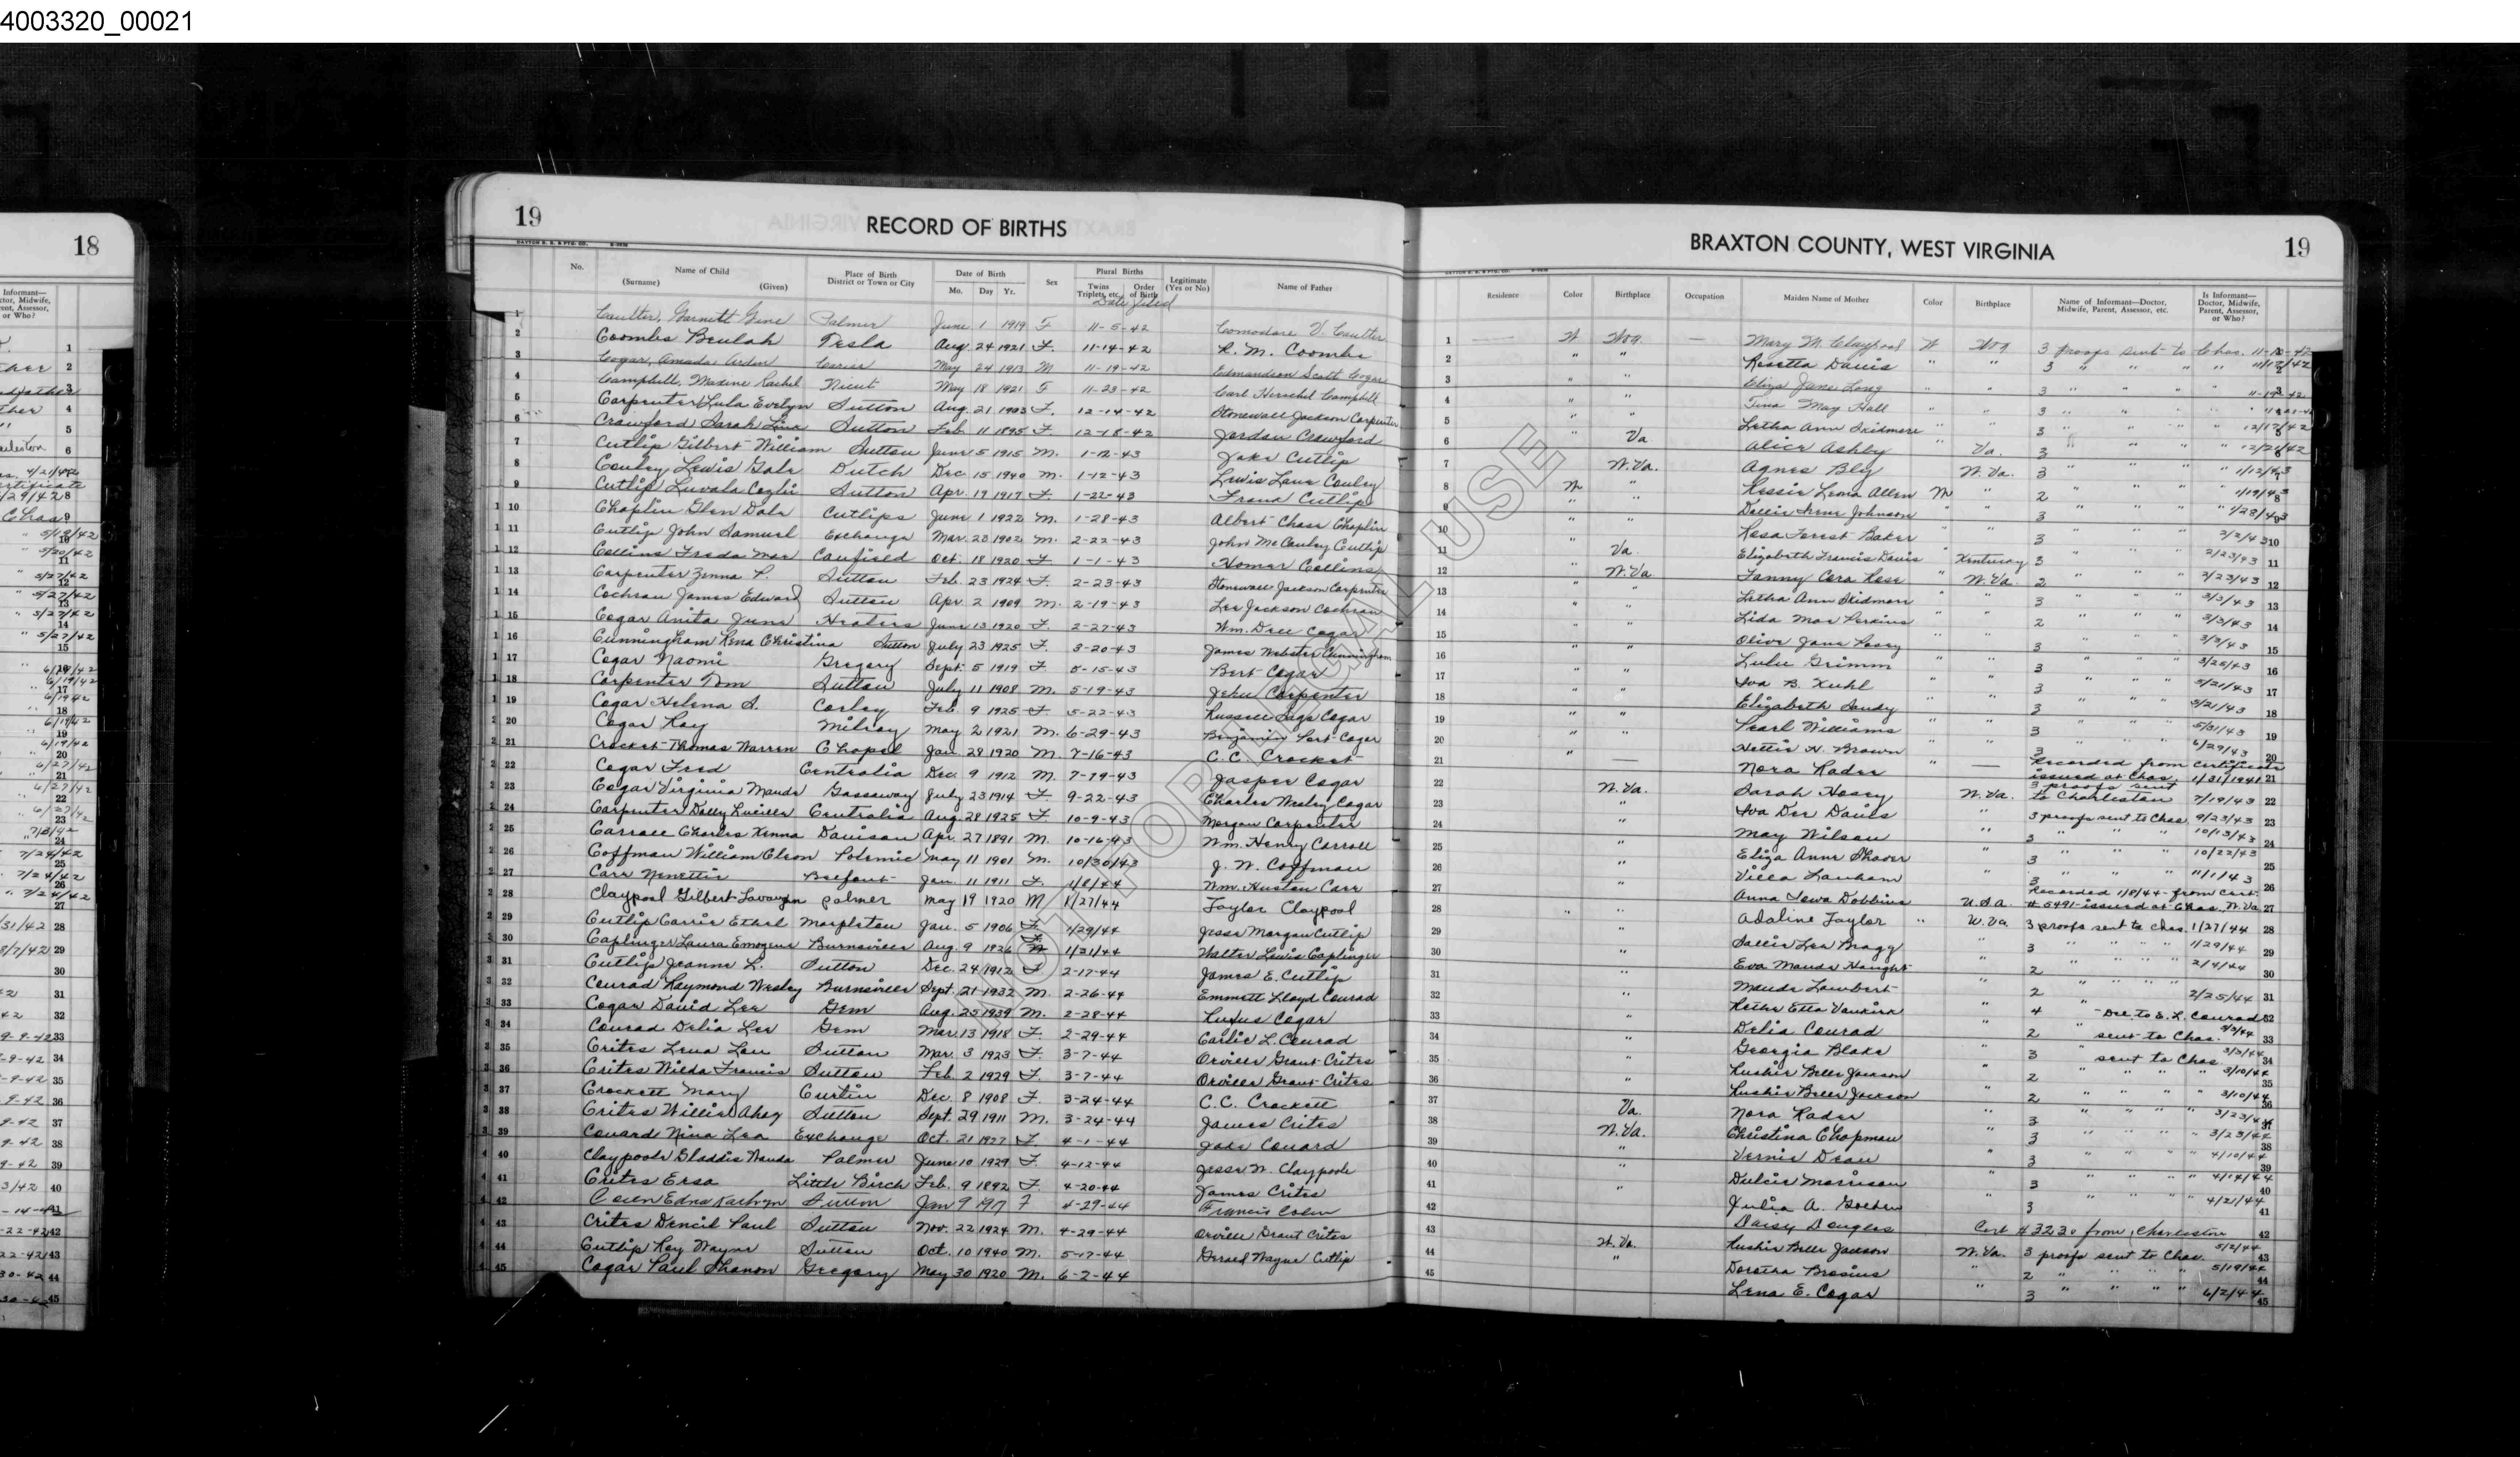 4003320_00021
18
Informant—
ctor, Midwife,
rent, Assessor,
or Who?
19
RECORD OF BIRTHS
No.
Name of Child
(Surname) (Given)
Place of Birth
District or Town or City
Date of Birth
Mo. Day Yr.
Sex
Plural Births
Twins Triplets, etc. Order of Birth
Date filed
Legitimate
(Yes or No)
Name of Father
1 Coulter, Garnett Gene Palmer June 1 1919 F 11-5-42 Comodore V. Coulter
2 Coombs Beulah Tesla Aug. 24 1921 F. 11-14-42 R. M. Coombs
3 Cogar, Amada Arden May 24 1913 M 11-19-42 Edmandson Scott Cogar
4 Campbell, Maxine Rachel Nicut May 18 1921 F 11-23-42 Carl Herschel Campbell
5 Carpenter Lula Evelyn Sutton Aug. 21 1903 F. 12-14-42 Stonewall Jackson Carpenter
6 Crawford Sarah Sutton Feb. 11 1895 F. 12-18-42 Jordan Crawford
7 Cutlip Gilbert William Sutton June 5 1915 M. 1-12-43 Jake Cutlip
8 Conley Lewis Gale Dutch Dec 15 1940 M. 1-12-43 Lewis Lane Conley
9 Cutlip Luvala Sutton Apr. 19 1917 F. 1-22-43 Cutlip
10 Chaplin Glen Dale Cutlips June 1 1922 M. 1-28-43 Albert Chase Chaplin
11 Cutlip John Samuel Exchange Mar. 23 1902 M. 2-22-43 John McCauley Cutlip
12 Collins Freda Mae Canfield Oct. 18 1920 F 1-1-43 Homer Collins
13 Carpenter Zenna P. Sutton Feb. 23 1924 F. 2-23-43 Stonewall Jackson Carpenter
14 Cochran James Edward Sutton Apr. 2 1909 M. 2-19-43 Lee Jackson Cochran
15 Cogar Anita June Heaters June 13 1920 F. 2-27-43 Wm. Dree Cogar
16 Cunningham Rena Christina Sutton July 23 1925 F. 3-20-43 James Webster Cunningham
17 Cogar Naomi Gregory Sept. 5 1919 F. 5-15-43 Bert Cogar
18 Carpenter Tom Sutton July 11 1908 M. 5-19-43 John Carpenter
19 Cogar Helena S. Corley Feb. 9 1925 F. 5-22-43 Russell Sage Cogar
20 Cogar Roy Milroy May 2 1921 M. 6-29-43 Benjamin Port Cogar
21 Crocket Thomas Warren Chapel Jan. 28 1920 M. 7-16-43 C. C. Crocket
22 Cogar Fred Centralia Dec. 9 1912 M. 7-19-43 Jasper Cogar
23 Cogar Virginia Maude Gassaway July 23 1914 F. 9-22-43 Charles Wesley Cogar
24 Carpenter Dolly Lucille Centralia Aug. 28 1925 F 10-9-43 Morgan Carpenter
25 Carroll Charles Kenna Davison Apr. 27 1891 M 10-16-43 Wm. Henry Carroll
26 Coffman William Cleon Polemic May 11 1901 M. 10/30/43 J. W. Coffman
27 Carr Nenettie Belfont Jan. 11 1911 F. 1/8/44 Wm. Huston Carr
28 Claypool Gilbert Lavaughn Palmer May 19 1920 M 1/27/44 Taylor Claypool
29 Cutlip Carrie Ethel Marpleton Jan. 5 1906 F. 1/29/44 Jesse Morgan Cutlip
30 Caplinger Laura Emogene Burnsville Aug. 9 1926 F. 1/31/44 Walter Lewis Caplinger
31 Cutlip Jeanne L. Sutton Dec. 24 1912 F 2-17-44 James E. Cutlip
32 Conrad Raymond Wesley Burnsville Sept. 21 1932 M. 2-26-44 Emmett Lloyd Conrad
33 Cogar David Lee Gem Aug. 25 1939 M. 2-28-44 Rufus Cogar
34 Conrad Delia Lee Gem Mar. 13 1918 F. 2-29-44 Carlie L. Conrad
35 Crites Lena Lou Sutton Mar. 3 1923 F. 3-7-44 Orville Grant Crites
36 Crites Wilda Francis Sutton Feb. 2 1929 F. 3-7-44 Orville Grant Crites
37 Crockett Mary Curtin Dec. 8 1908 F. 3-24-44 C. C. Crockett
38 Crites Willie Ahog Sutton Sept. 29 1911 M. 3-24-44 James Crites
39 Conard Nina Lea Exchange Oct. 21 1927 F 4-1-44 Jake Conard
40 Claypoole Gladdis Wanda Palmer June 10 1929 F. 4-12-44 Jesse W. Claypoole
41 Crites Ersa Little Birch Feb. 9 1892 F. 4-20-44 James Crites
42 Coen Edna Kathryn Sutton Jan 9 1917 F 4-29-44 Francis Coen
43 Crites Dencil Paul Sutton Nov. 22 1924 M. 4-29-44 Orville Grant Crites
44 Cutlip Roy Wayne Sutton Oct. 10 1940 M. 5-17-44 Gerald Wayne Cutlip
45 Cogar Paul Shanon Gregory May 30 1920 M. 6-2-44
BRAXTON COUNTY, WEST VIRGINIA
19
Residence
Color
Birthplace
Occupation
Maiden Name of Mother
Color
Birthplace
Name of Informant—Doctor,
Midwife, Parent, Assessor, etc.
Is Informant—
Doctor, Midwife,
Parent, Assessor,
or Who?
1 W W Va Mary M. Claypool W W Va 3 proofs sent to Chas. 11-10-42
2 " " Rosetta Davis " " 3 " " " " 11/17/42
3 " " Eliza Jane Long " " 3 " " " " 11-19-42
4 " " Tina May Hall " " 3 " " " "
5 " " Letha Ann Skidmore " " 3 " " " " 12/17/42
6 " Va Alice Ashby " Va. 3 " " " " 12/21/42
7 W. Va. Agnes Bly W. Va. 3 " " " " 1/12/43
8 W " Ressie Leona Allen W " 2 " " " " 1/19/43
9 " " Dollie Irene Johnson " " 3 " " " " 1/28/43
10 " " Rosa Forest Baker " " 3 " " " 2/2/43
11 " Va. Elizabeth Francis Davis " Kentucky 3 " " " 2/23/43
12 " W. Va. Fanny Cora Rose " W. Va. 2 " " " 2/23/43
13 " " Letha Ann Skidmore " " 3 " " " 3/3/43
14 " " Lida Mae Perkins " " 2 " " " 3/3/43
15 " " Olive Jane Posey " " 3 " " " 3/3/43
16 " " Lulu Grimm " " 3 " " " 3/25/43
17 " " Iva B. Kuhl " " 3 " " " 5/21/43
18 " " Elizabeth Sandy " " 3 " " " 5/21/43
19 " " Pearl Williams " " 3 " " " 5/31/43
20 " " Hettie H. Brown " " 3 " " " 6/29/43
21 " — Nora Rader " — Recorded from certificate issued at Chas. 1/31/1941
22 W. Va. Sarah Hosey W. Va. 3 proofs sent to Charleston 7/19/43
23 " Iva Dee Davis " 3 proofs sent to Chas. 9/23/43
24 " May Wilson " 3 " " " 10/13/43
25 " Eliza Anne Shaver " 3 " " " 10/22/43
26 " Villa Lanham " 3 " " " 11/1/43
27 " Anna Iowa Dobbins U.S.A. Recorded 1/8/44 from Cert. # 5491 issued at Chas. W. Va.
28 " " Adaline Taylor " W. Va. 3 proofs sent to Chas. 1/27/44
29 " Sallie Lea Bragg " 3 " " " " 1/29/44
30 " Eva Maude Haught " 2 " " " " 2/4/44
31 " Maude Lambert " 2 " " " " 2/25/44
32 " Retha Etta Vankirk " 4 " Del. to E. L. Conrad
33 " Delia Conrad " 2 " sent to Chas. 3/3/44
34 " Georgia Blake " 3 sent to Chas. 3/3/44
35 " Rushie Belle Jackson " 2 " " " " 3/10/44
36 " Rushie Belle Jackson " 2 " " " " 3/10/44
37 Va. Nora Rader " 3 " " " " 3/23/44
38 W. Va. Christina Chapman " 3 " " " " 3/23/44
39 " Vernie Dean " 3 " " " " 4/10/44
40 " Dulcie Morrison " 3 " " " " 4/14/44
41 " Julia A. " 3 " " " " 4/21/44
42 Daisy Douglas Cert # 3230 from Charleston
43 W. Va. Rushie Belle Jackson W. Va. 3 proofs sent to Chas. 5/2/44
44 " Dorotha Brosius " 2 " " " " 5/19/44
45 Lena E. Cogar " 3 " " " " 6/2/44
NOT FOR LEGAL USE